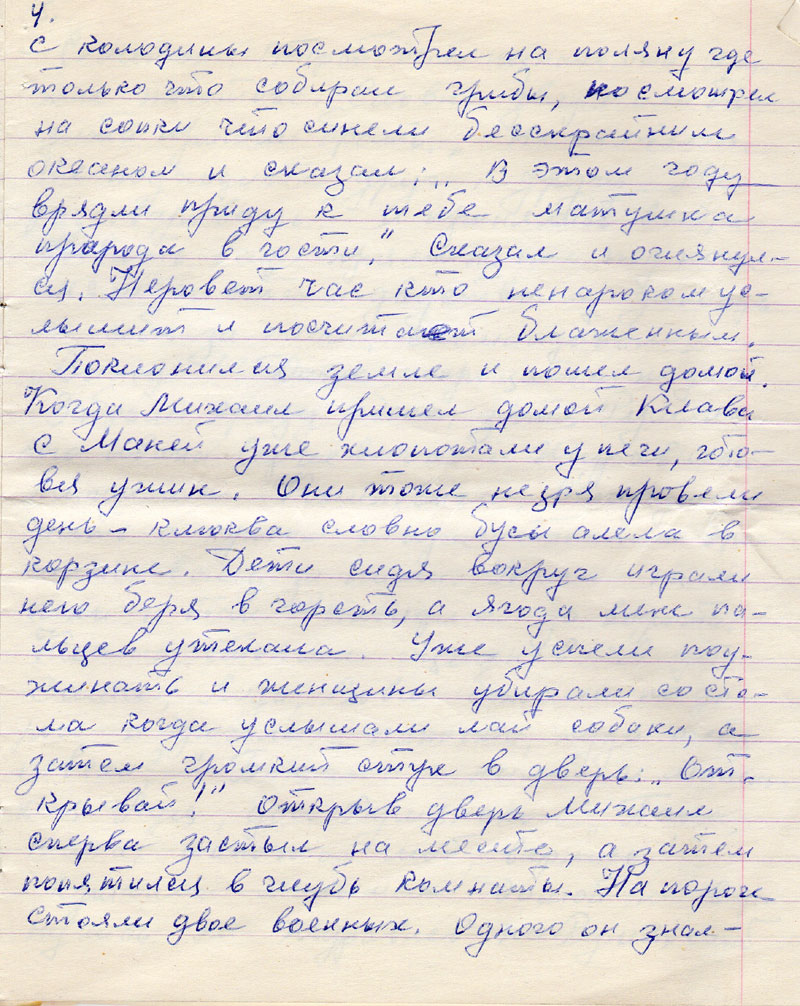 4.
с колодины посмотрел на поляну где
только что собирал грибы, посмотрел
на сопки что синели бескрайним
океаном и сказал: „В этом году
врядли приду к тебе матушка
природа в гости." Сказал и оглянул-
ся. Неровет час кто ненароком ус-
лышит и посчитает блаженным.
Поклонился земле и пошел домой.
Когда Михаил пришел домой Клава
с Маней уже хлопотали у печи, гото-
вя ужин. Они тоже незря провели
день – клюква словно бусы алела в
корзине. Дети сидя вокруг играли
нею беря в горсть, а ягода меж па-
льцев утекала. Уже успели поу-
жинать и женщины убирали со сто-
ла когда услышали лай собаки, а
затем громкий стук в дверь: „От-
крывай!" Открыв дверь Михаил
сперва застыл на месте, а затем
попятился в глубь комнаты. На пороге
стояли двое военных. Одного он знал –